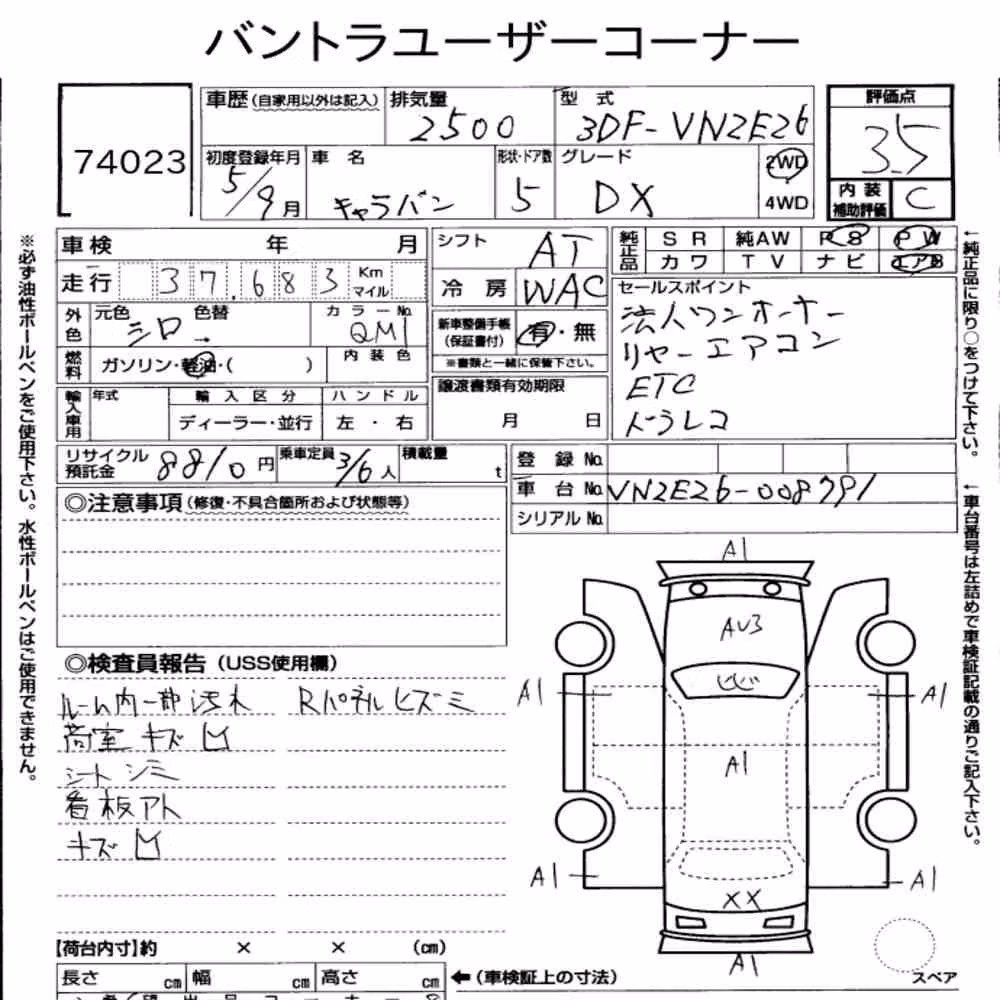 バントラユーザーコーナー
74023
車歴 (自家用以外は記入) 排気量 型式 評価点
2500 3DF-VN2E26 3.5
初度登録年月 車名 形状・ドア数 グレード 2WD 内装補助評価 C
5/9月 キャラバン 5 DX 4WD
※必ず油性ボールペンをご使用下さい。水性ボールペンはご使用できません。
車検 年 月
走行 37,683 Km マイル
外色 元色 シロ 色替 カラーNo. QM1
燃料 ガソリン・軽油・( ) 内装色
輸入車用 年式 輸入区分 ハンドル
ディーラー・並行 左・右
シフト AT
冷房 WAC
新車整備手帳(保証書付) 有・無
※書類と一緒に保管下さい。
譲渡書類有効期限
月 日
純正品 SR 純AW PS PW
カワ TV ナビ エアB
セールスポイント
法人ワンオーナー
リヤーエアコン
ETC
ドラレコ
←純正品に限り○をつけて下さい。
←車台番号は左詰めで車検証記載の通りご記入下さい。
リサイクル預託金 8810円 乗車定員 3/6人 積載量 t
登録No.
車台No. VN2E26-008791
シリアルNo.
◎注意事項 (修復・不具合箇所および状態等)
◎検査員報告 (USS使用欄)
ルーム内一部汚れ Rパネルヒズミ
荷室 キズ凹
シートシミ
看板アト
キズ凹
A1
AU3
A1 A1
A1
A1 A1
XX
A1
スペア
【荷台内寸】約 × × (cm)
長さ cm 幅 cm 高さ cm ←(車検証上の寸法)